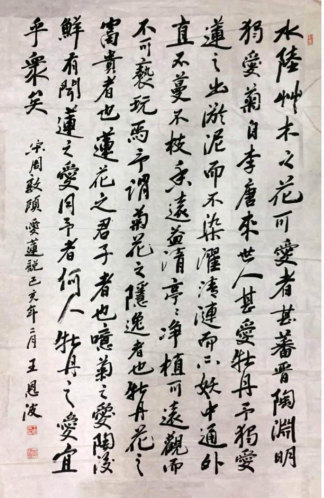 水陸艸木之花可愛者甚蕃晋陶淵明
獨愛菊自李唐來世人甚愛牡丹予獨愛
蓮之出淤泥而不染濯清漣而不妖中通外
直不蔓不枝香遠益清亭〻净植可遠觀而
不可褻玩焉予謂菊花之隱逸者也牡丹花之
富貴者也蓮花之君子者也噫菊之愛陶後
鮮有聞蓮之愛同予者何人牡丹之愛宜
乎衆矣 宋周敦頤愛蓮説己亥年二月 王恩波